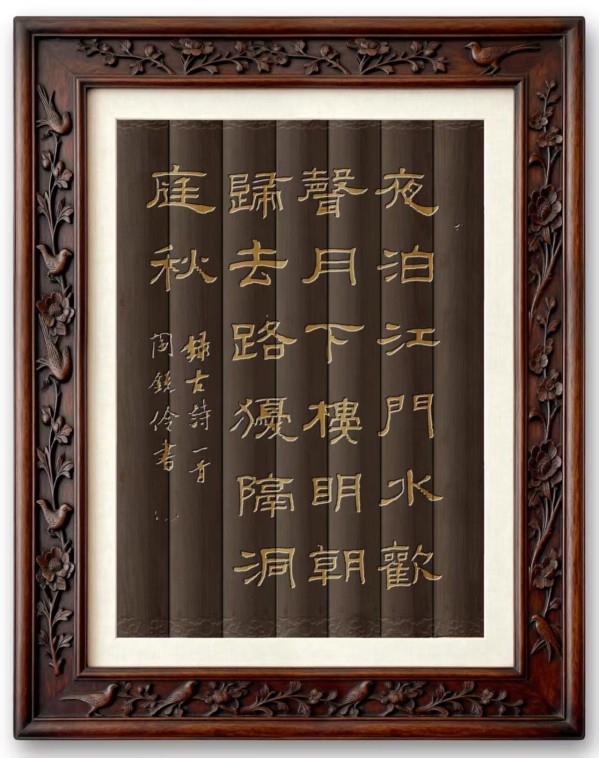 夜泊江門水歡
聲月下樓明朝
歸去路猶隔洞
庭秋
錄古詩一首
伶書